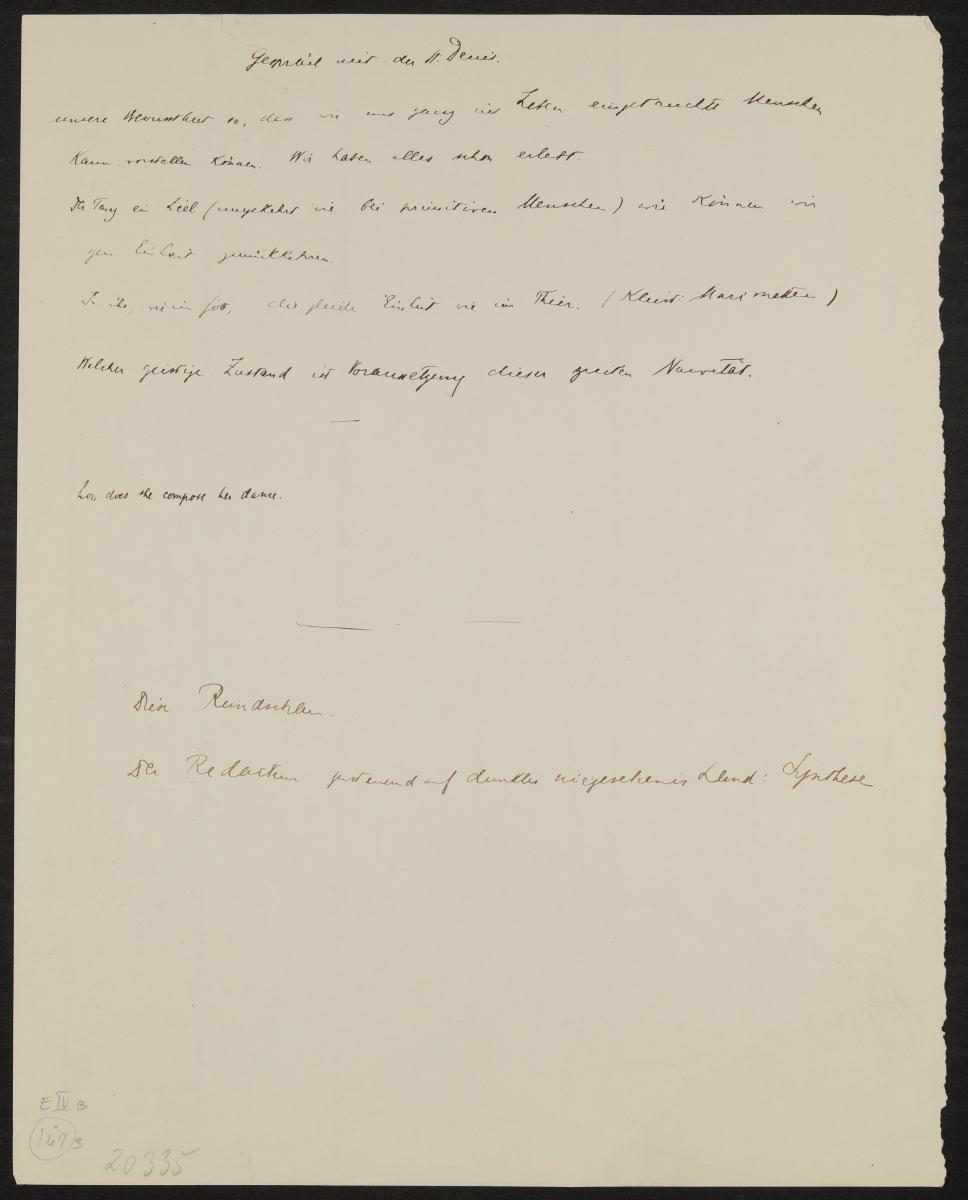 Gespräch mit der St. Denis.
unsere Bewusstheit so, dass wir uns ganz ins Leben eingetauchte Menschen
kaum vorstellen können. Wir haben alles schon erlebt.
Der Tanz ein Ziel (umgekehrt wie bei primitiven Menschen) wie können wir
zur Einheit zurückkehren.
In ihr, wie im Gott, die gleiche Einheit wie im Thier. (Kleist: Marionetten)
Welcher geistige Zustand ist Voraussetzung dieser zweiten Naivetät.
how does she compose her dance.
Diese Rundschau
Der Redacteur auf dunkles niegesehenes Land: Synthese
E IV B
167 3
20335